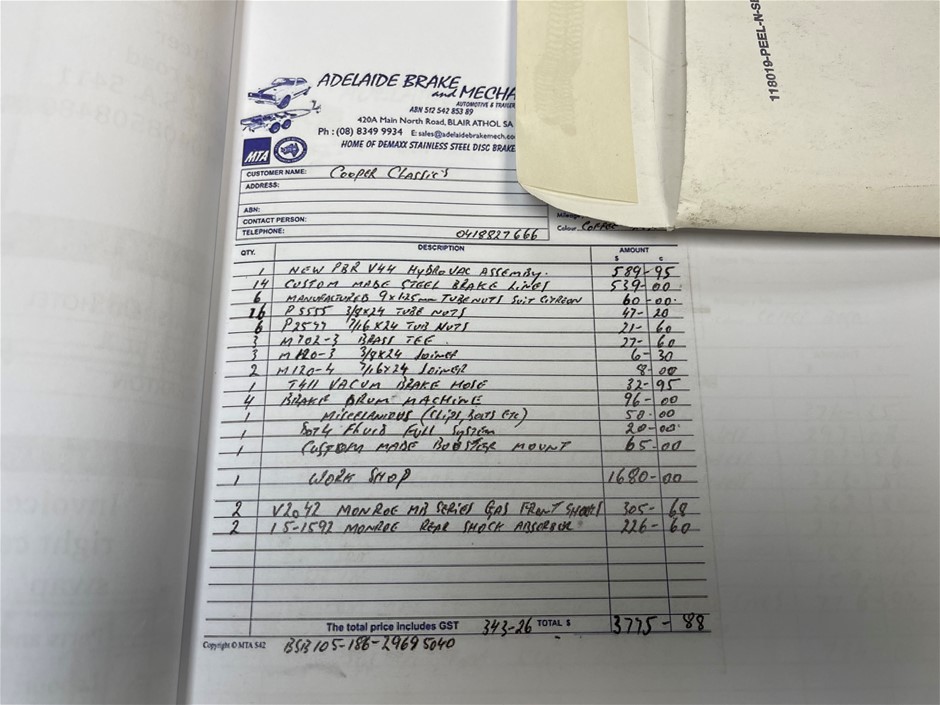 118019-PEEL-N-S
ADELAIDE BRAKE
and MECHA
AUTOMOTIVE & TRAILER
ABN 512 542 853 89
420A Main North Road, BLAIR ATHOL SA
Ph : (08) 8349 9934 E: sales@adelaidebrakemech.co
HOME OF DEMAXX STAINLESS STEEL DISC BRAKE
MTA
CUSTOMER NAME: Cooper Classic's
ADDRESS:
ABN:
CONTACT PERSON:
Mileage
TELEPHONE: 0418827666 Colour
QTY. DESCRIPTION AMOUNT
$ c
1 NEW PBR V44 HYDROVAC ASSEMBLY. 589-95
14 CUSTOM MADE STEEL BRAKE LINES 539-00
6 MANUFACTURED 9x1.25mm TUBENUTS SUIT 60-00
16 P5555 3/8x24 TUBE NUTS 47-20
6 P2577 7/16x24 TUB NUTS 21-60
3 M702-3 BRASS TEE 27-60
3 M120-3 3/8x24 JOINER 6-30
2 M120-4 7/16x24 JOINER 8-00
1 T411 VACUM BRAKE HOSE 32-95
4 BRAKE DRUM MACHINE 96-00
1 MISCELANIOUS (CLIPS, BOLTS ETC) 50-00
1 DOT4 FLUID FULL SYSTEM 20-00
1 CUSTOM MADE BOOSTER MOUNT 65-00
1 WORK SHOP 1680-00
2 V2042 MONROE MR SERIES GAS FRONT SHOCKS 305-68
2 15-1592 MONROE REAR SHOCK ABSORBER 226-60
The total price includes GST 343-26 TOTAL $ 3775-88
Copyright © MTA S42 BSB 105-186-29695040